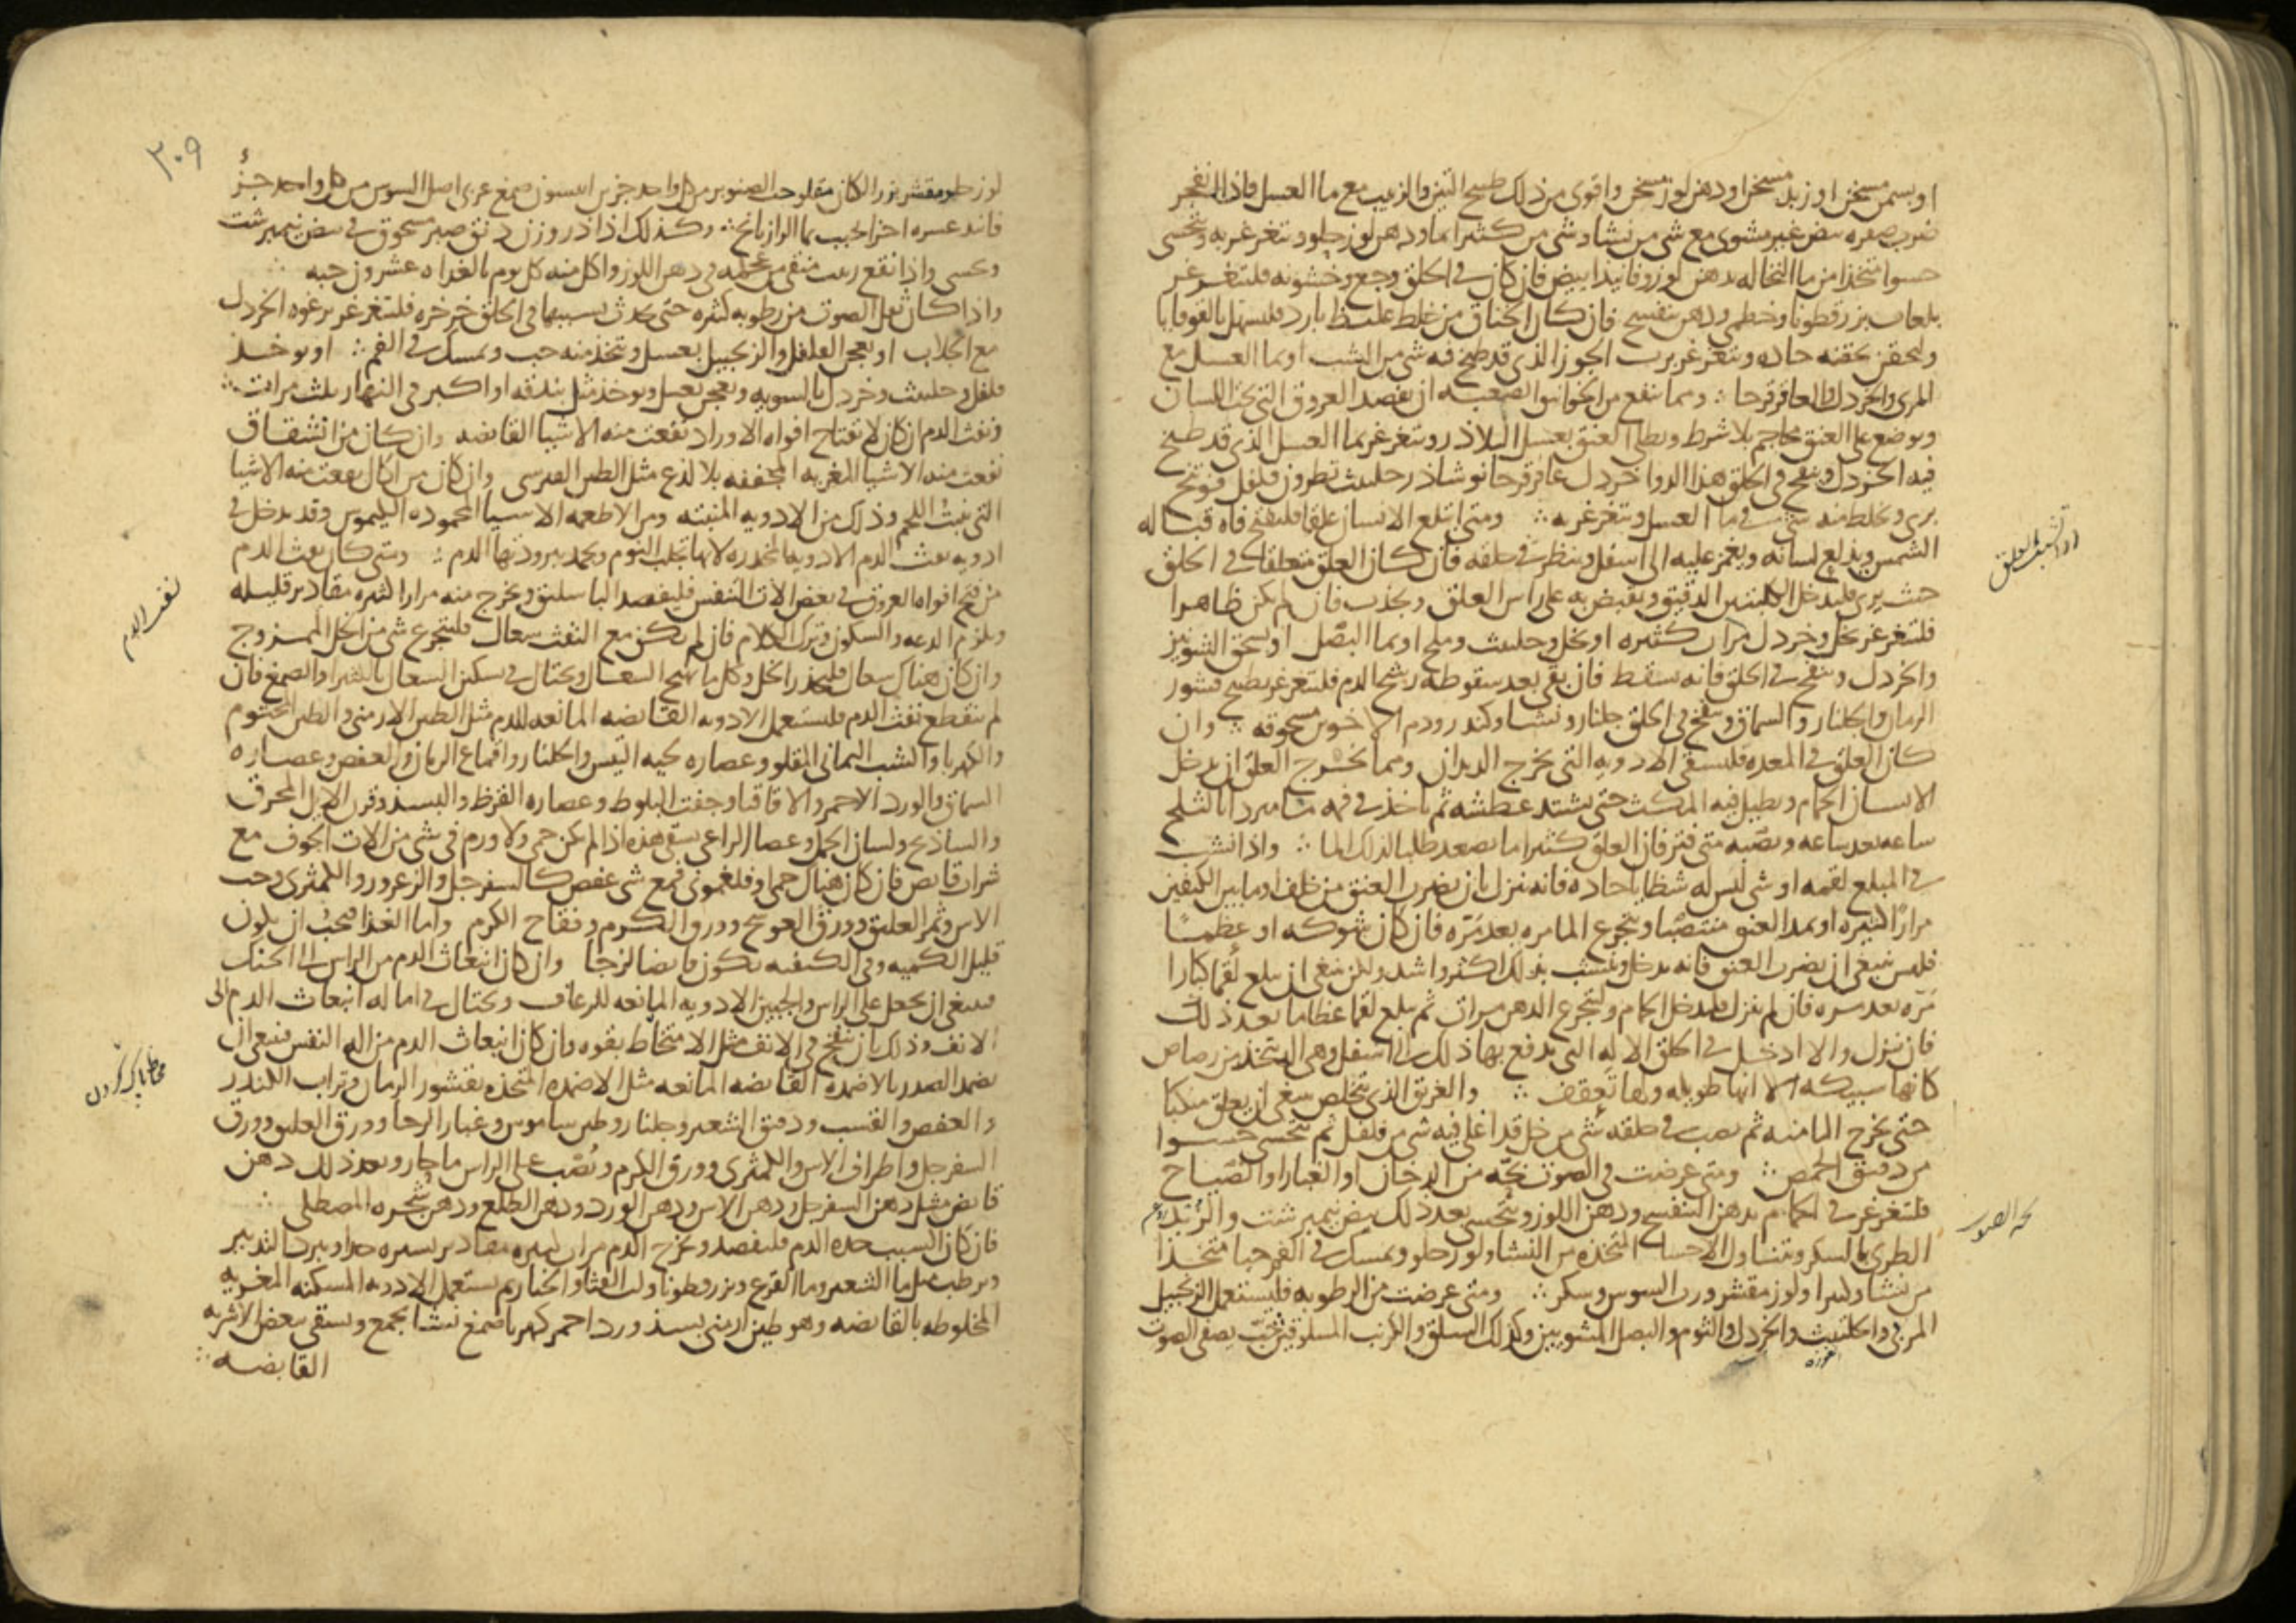 او بسمن مسخن او زبد مسخن او دهن لوز مسخن واقوى من ذلك طبيخ التين والزبيب مع ما العسل فاذا انفجر
ضرب صفره بيض غير مشوى مع شى من نشا وشى من كثيرا بما ودهن لوز حلو وتغرغر به وتحسى
حسوا متخذا من ما النخاله بدهن لوز وفانيد ابيض فان كان فى الحلق وجع وخشونه فلتغرغر
بلعاب بزر قطونا وخطمى ودهن بنفسج فان كان الخناق من خلط غليظ بارد فليسهل بالقوقايا
ولحقن بحقنه حاده وتغرغر برب الجوز الذى قد طبخ فيه شى من الشب او بما العسل مع
المرى والخردل والعاقرقرحا ومما ينفع من الخوانيق الصعبه ان يفصد العروق التى تحت اللسان
ويوضع على العنق محاجم بلا شرط ويطلى العنق بعسل البلاذر وتغرغر بما العسل الذى قد طبخ
فيه الخردل وينفخ فى الحلق هذا الدوا خردل عاقرقرحا نوشاذر حلتيت نطرون فلفل فوتنج
برى ويخلط منه شى فى ما العسل وتغرغر به ومتى ابتلع الانسان علقا فليفتح فاه قباله
الشمس ويدلع لسانه ويغمز عليه الى اسفل وينظر فى حلقه فان كان العلق متعلقا فى الحلق
حيث يرى فليدخل الكلبتين الدقيق ويقبض به على راس العلق ويجذب فان لم يكن ظاهرا
فلتغرغر بخل وخردل مرار كثيره او بخل وحلتيت وملح او بما البصل او يسحق الشونيز
والخردل وينفخ فى الحلق فانه يسقط فان بقى بعد سقوطه رشح الدم فلتغرغر بطبيخ قشور
الرمان والجلنار والسماق وينفخ فى الحلق جلنار ونشا وكندر ودم الاخوين مسحوقه وان
كان العلق فى المعده فليسقى الادويه التى تخرج الديدان ومما يخرج العلق ان يدخل
الانسان الحمام ويطيل فيه المكث حتى يشتد عطشه ثم ياخذ فى فمه ما مبردا بالثلج
ساعه بعد ساعه ويصبه متى فتر فان العلق كثيرا ما يصعد طلبا لذلك الما واذا نشب
فى المبلع لقمه او شى ليس له شظايا حاده فانه ينزل بان يضرب العنق من خلف او ما بين الكتفين
مرارا كثيره او يمد العنق منتصبا ويتجرع الما مره بعد مره فان كان شوكه او عظما
فليس ينبغى ان يضرب العنق فانه يدخل وينشب بذلك اكثر واشد ولكن ينبغى ان يبلع لقما كبارا
مره بعد مره فان لم ينزل فليدخل الحمام وليتجرع الدهن مرات ثم يبلع لقما عظاما بعد ذلك
فان نزل والا ادخل فى الحلق الاله التى يدفع بها ذلك الى اسفل وهى التى تتخذ من رصاص
كانها سبيكه الا انها طويله ولها تعقف والغريق الذى يتخلص ينبغى ان يعلق منكبا
حتى يخرج الما منه ثم يصب فى حلقه شى من خل قد اغلى فيه شى من فلفل ثم تحسى حسوا
من دقيق الحمص ومتى عرضت فى الصوت بحه من الدخان او الغبار او الصياح
فلتغرغر فى الحمام بدهن البنفسج ودهن اللوز وتحسى بعد ذلك بيض نيمبرشت والزبد
الطرى بالسكر وتناول الاحسا المتخذه من النشا ولوز حلو ويمسك فى الفم حبا متخذا
من نشا وكثيرا ولوز مقشر ورب السوس وسكر ومتى عرضت من الرطوبه فليستعمل الزنجبيل
المربى والحلتيت والخردل والثوم والبصل المشويين وكذلك السلق والكرنب المسلوقين حب يصفى الصوت
ادا نشب العلق
بحه الصوت
٣٠٩
لوز حلو مقشر بزر الكتان مقلو حب الصنوبر من كل واحد جزين انيسون صمغ عربى اصل السوس من كل واحد جزؤ
فانيد عشره اجزا يحبب بما الرازيانج وكذلك اذا ذر وزن دانق صبر مسحوق فى بيض نيمبرشت
وتحسى واذا نقع زبيب منقى من عجمه فى دهن اللوز واكل منه كل يوم بالغداه عشرون حبه
واذا كان ثقل الصوت من رطوبه كثيره حتى يحدث بسببها فى الحلق خرخره فلتغرغر برغوه الخردل
مع الجلاب او يعجن الفلفل والزنجبيل بعسل وتتخذ منه حب ويمسك فى الفم او يوخذ
فلفل وحلتيت وخردل بالسويه ويعجن بعسل ويوخذ مثل بندقه او اكبر فى النهار ثلث مرات
ونفث الدم ان كان لانفتاح افواه الاوراد نفعت منه الاشيا القابضه وان كان من انشقاق
نفعت منه الاشيا المغريه المجففه بلا لذع مثل الطين القبرسى وان كان من اكال نفعت منه الاشيا
التى تنبت اللحم وذلك من الادويه المنبته ومن الاطعمه الاشيا المحموده الكيموس وقد يدخل فى
ادويه نفث الدم الادويه المخدره لانها تجلب النوم وتجمد ببرودتها الدم ومتى كان نفث الدم
من فتح افواه العروق فى بعض الات التنفس فليفصد الباسليق ويخرج منه مرارا كثيره مقادير قليله
ويلزم الدعه والسكون وترك الكلام فان لم يكن مع النفث سعال فليتجرع شى من الخل الممزوج
وان كان هناك سعال فليحذر الخل وكل ما يهيج السعال ويحتال فى تسكين السعال بالكثيرا والصمغ فان
لم ينقطع نفث الدم فليستعمل الادويه القابضه المانعه للدم مثل الطين الارمنى والطين المختوم
والكهربا والشب اليمانى المقلو وعصاره لحيه التيس والجلنار واقماع الرمان والعفص وعصاره
السماق والورد الاحمر والاقاقيا وجفت البلوط وعصاره القرظ والبسد وقرن الايل المحرق
والساذنج ولسان الحمل وعصا الراعى يسقى هذه اذا لم يكن حمى ولا ورم فى شى من الات الجوف مع
شراب قابض فان كان هناك حمى او فلغمونى فمع شى عفص كالسفرجل والزعرور والكمثرى وحب
الاس وثمر العليق وورق العوسج وورق الكرم وفقاح الكرم واما الغذا فيجب ان يكون
قليل الكميه وفى الكيفيه يكون قابضا لزجا وان كان انبعاث الدم من الراس الى الحنك
فينبغى ان يجعل على الراس والجبين الادويه المانعه للرعاف ويحتال فى اماله انبعاث الدم الى
الانف وذلك بان ينفخ فى الانف مثل الامتخاط بقوه وان كان انبعاث الدم من اله النفس فينبغى ان
يضمد الصدر بالاضمده القابضه المانعه مثل الاضمده المتخذه بقشور الرمان وتراب الكندر
والعفص والقسب ودقيق الشعير وجلنار وطين ساموس وغبار الرحا وورق العليق وورق
السفرجل واطراف الاس والكمثرى وورق الكرم ويصب على الراس ما حار وبعد ذلك دهن
قابض مثل دهن السفرجل ودهن الاس ودهن الورد ودهن الطلع ودهن شجره المصطكى
فان كان السبب حده الدم فليفصد ويخرج الدم مرارا كثيره مقادير يسيره جدا ويبرد التدبير
ويرطب مثل ما الشعير وما القرع وبزر قطونا ولب القثا والخيار ثم يستعمل الادويه المسكنه المغريه
المخلوطه بالقابضه وهو طين ارمنى بسد ورد احمر كهربا صمغ نشا يجمع ويسقى ببعض الاشربه
القابضه
نفث الدم